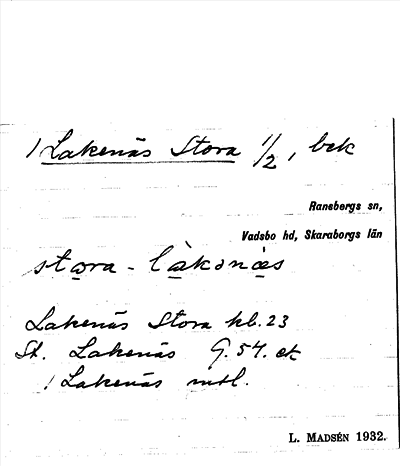 / Lakenäs Stora 1/2, bek
Ransbergs sn,
Vadsbo hd, Skaraborgs län
stora - làkənäs
Lakenäs Stora hb. 23
St. Lakenäs G. 54. ek
/ Lakenäs mtl.
L. MADSÉN 1932.